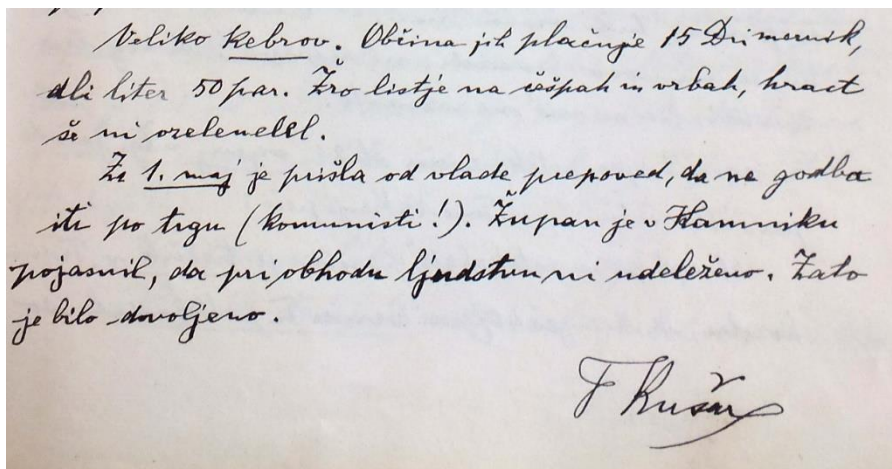 Veliko kebrov. Občina jih plačuje 15 Din mernik,
ali liter 50 par. Žro listje na češpah in vrbah, hrast
še ni ozelenel.
Za 1. maj je prišla od vlade prepoved, da ne godba
iti po trgu (komunisti!). Župan je v Kamniku
pojasnil, da pri obhodu ljudstvu ni udeleženo. Zato
je bilo dovoljeno.
F Kušar